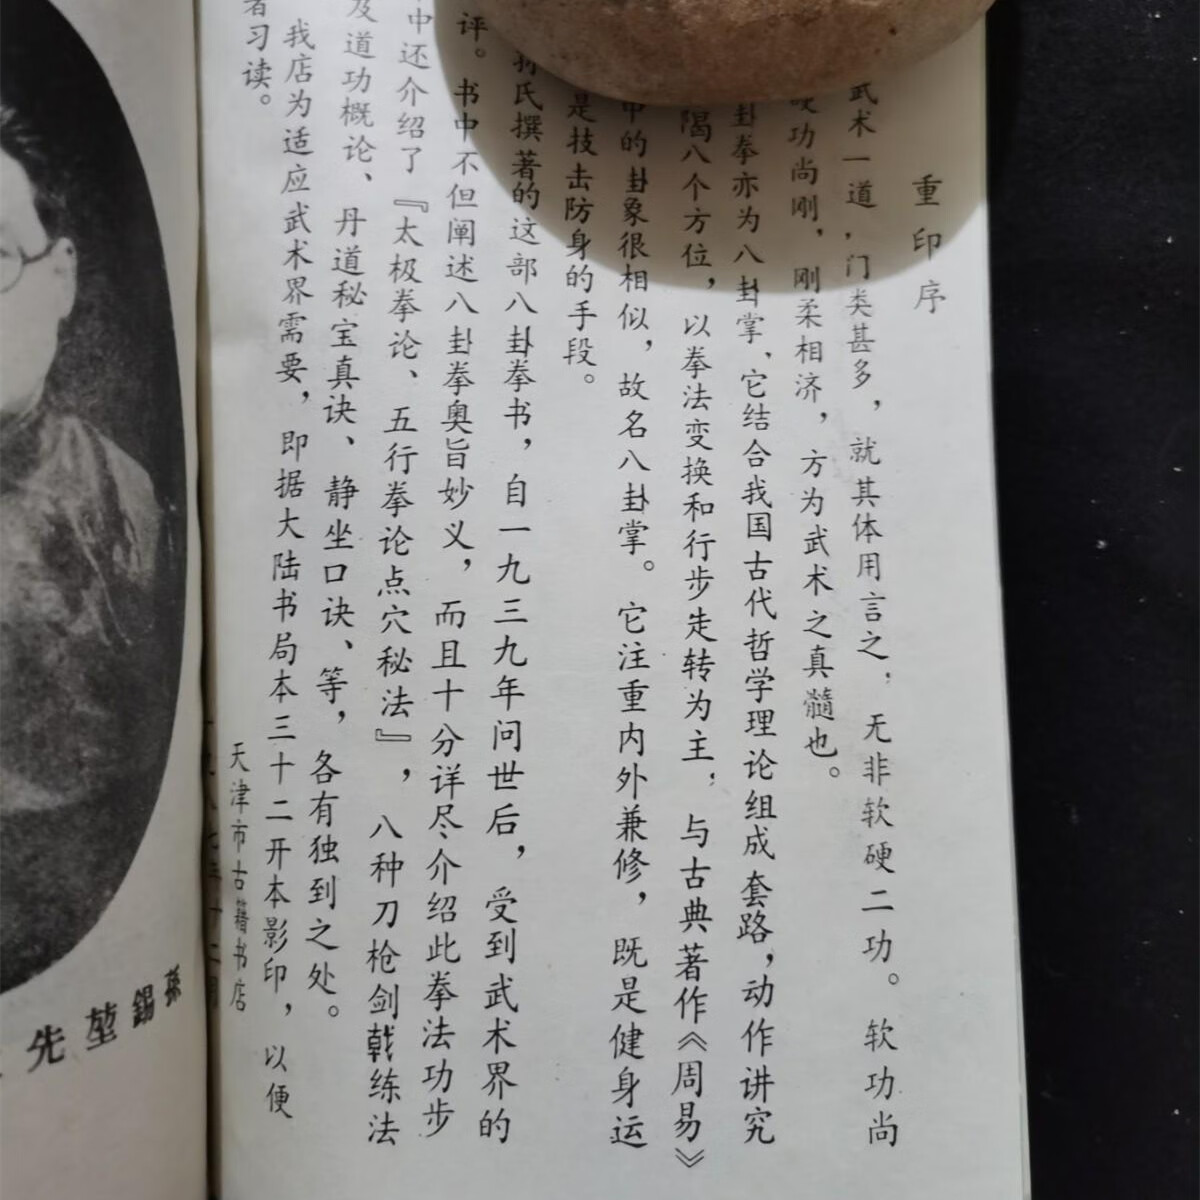 重印序
武术一道，门类甚多，就其体用言之，无非软硬二功。软功尚
硬功尚刚，刚柔相济，方为武术之真髓也。
卦拳亦为八卦掌、它结合我国古代哲学理论组成套路，动作讲究
隅八个方位，以拳法变换和行步走转为主，与古典著作《周易》
中的卦象很相似，故名八卦掌。它注重内外兼修，既是健身运
是技击防身的手段。
氏撰著的这部八卦拳书，自一九三九年问世后，受到武术界的
评。书中不但阐述八卦拳奥旨妙义，而且十分详尽介绍此拳法功步
中还介绍了『太极拳论、五行拳论点穴秘法』，八种刀枪剑戟练法
及道功概论、丹道秘宝真诀、静坐口诀、等，各有独到之处。
我店为适应武术界需要，即据大陆书局本三十二开本影印，以便
者习读。
天津市古籍书店
一九八七年十二月
孫錫堃先